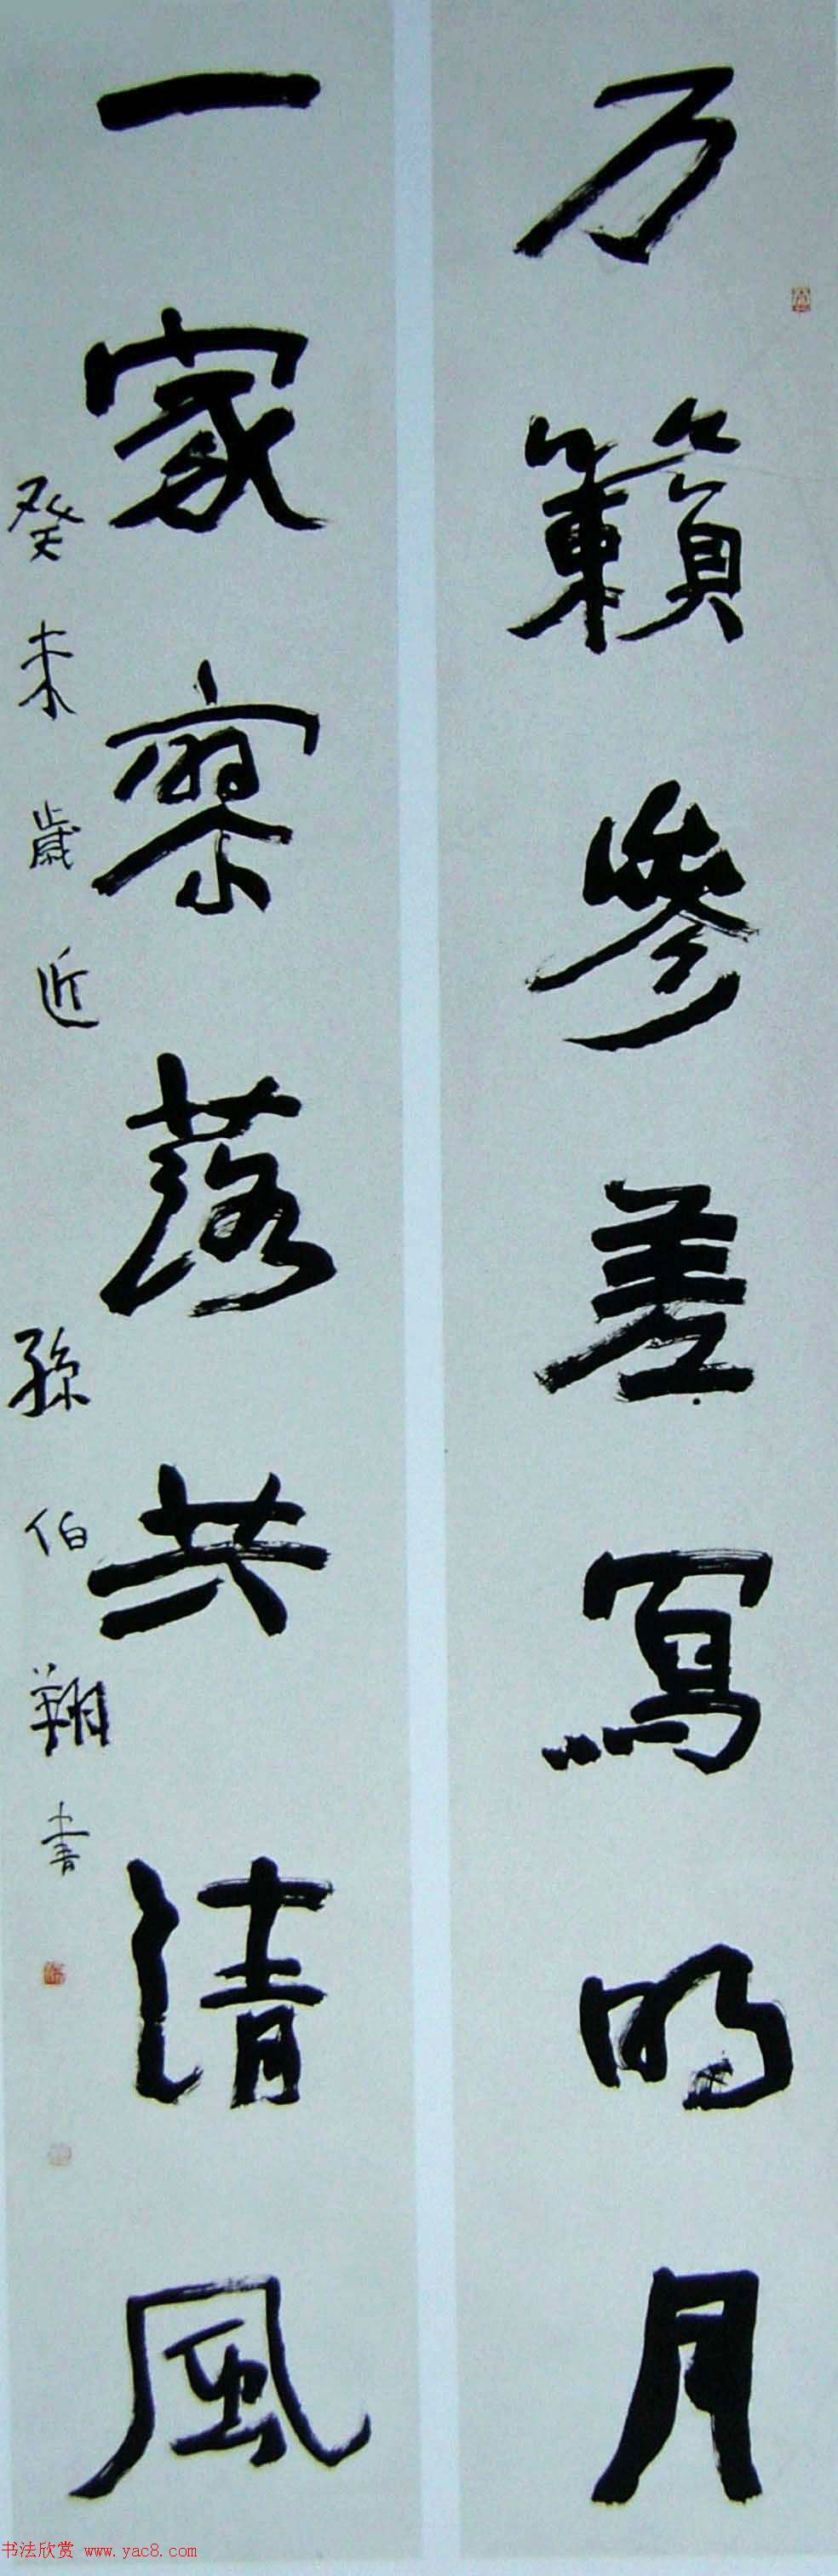 万籟參差寫明月
一家寥落共清風
癸未歲近 孫伯翔書
书法欣赏 www.yac8.com